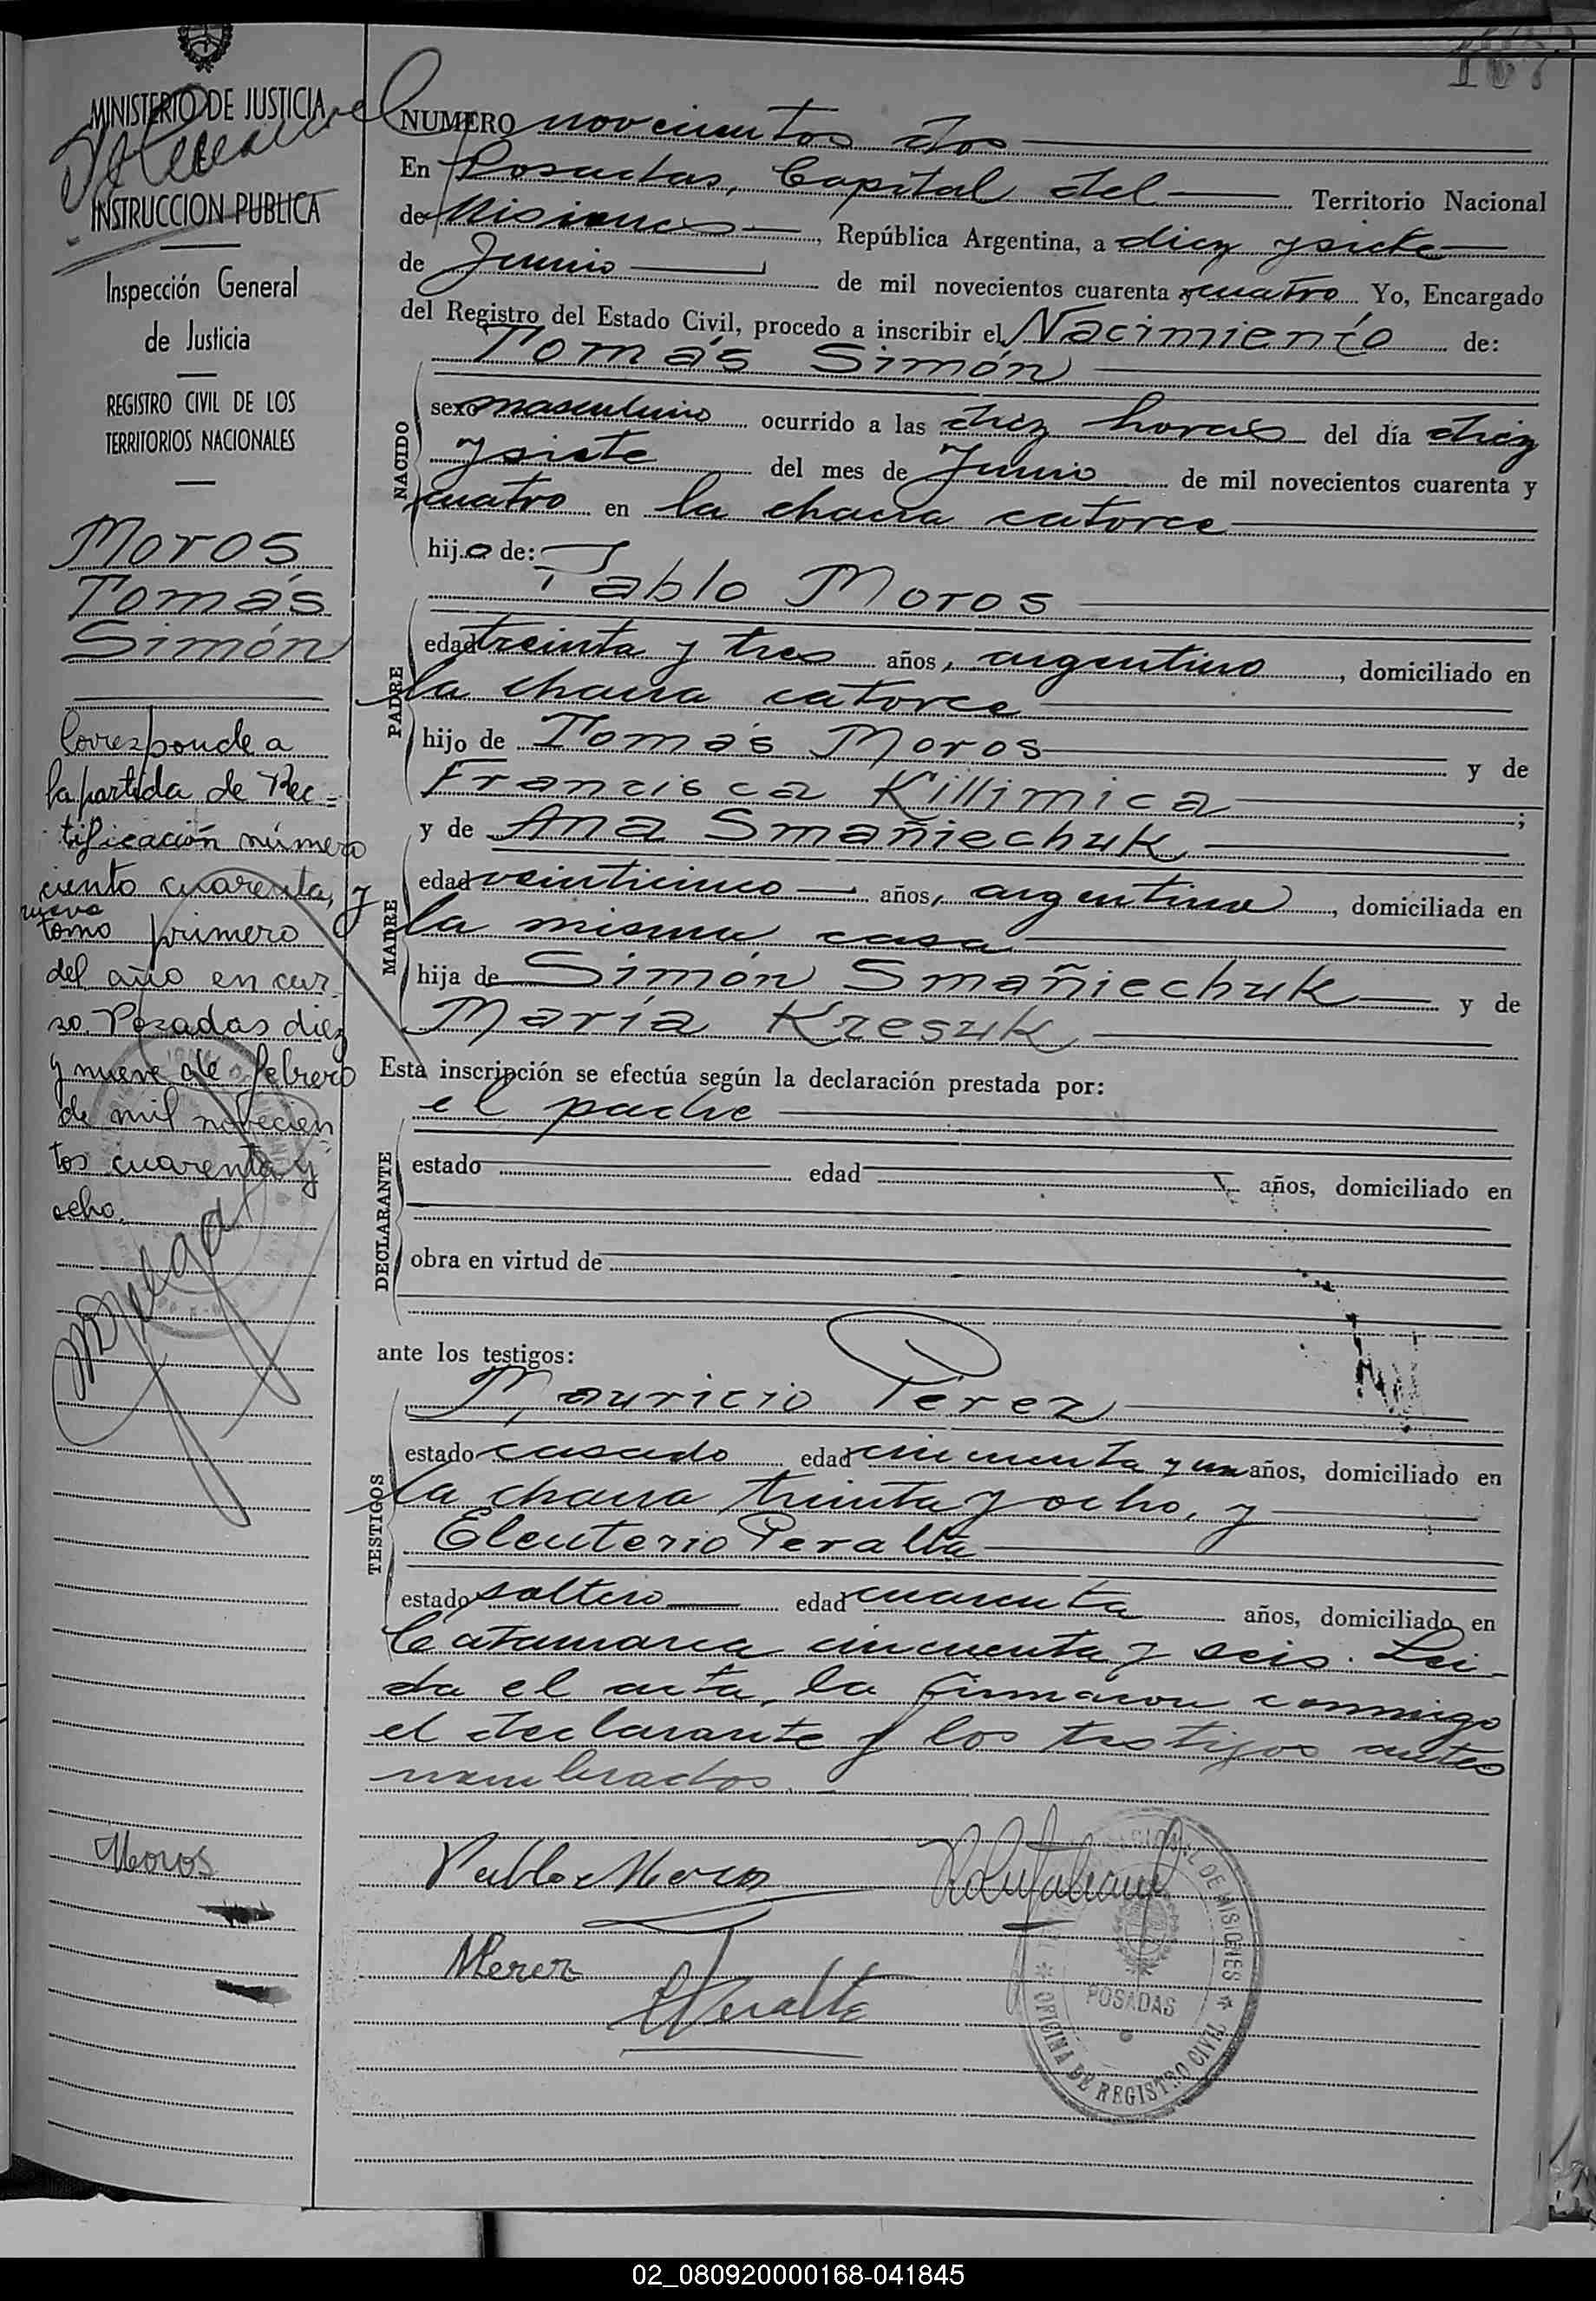 167
MINISTERIO DE JUSTICIA
INSTRUCCION PUBLICA
Inspección General
de Justicia
REGISTRO CIVIL DE LOS
TERRITORIOS NACIONALES
Moros
Tomás
Simón
Corresponde a
la partida de Rec=
tificación número
ciento cuarenta, y
nueve
tomo primero
del año en cur-
so. Posadas diez
y nueve de febrero
de mil novecien
tos cuarenta y
ocho.
Moros
NUMERO novecientos dos
En Posadas, Capital del Territorio Nacional
de Misiones, República Argentina, a diez y siete
de Junio de mil novecientos cuarenta y cuatro Yo, Encargado
del Registro del Estado Civil, procedo a inscribir el Nacimiento de:
Tomás Simón
NACIDO
sexo masculino ocurrido a las diez horas del día diez
y siete del mes de Junio de mil novecientos cuarenta y
cuatro en la chacra catorce
hijo de:
Pablo Moros
PADRE
edad treinta y tres años, argentino, domiciliado en
la chacra catorce
hijo de Tomás Moros y de
Francisca Killimica;
y de Ana Smañiechuk
MADRE
edad veinticinco años, argentina, domiciliada en
la misma casa
hija de Simón Smañiechuk y de
María Kresuk
Esta inscripción se efectúa según la declaración prestada por:
el padre
DECLARANTE
estado edad años, domiciliado en
obra en virtud de
ante los testigos:
Mauricio Perez
TESTIGOS
estado casado edad cincuenta y un años, domiciliado en
la chacra treinta y ocho, y
Eleuterio Peralta
estado soltero edad cuarenta años, domiciliado en
Catamarca cincuenta y seis. Lei-
da el acta, la firmaron conmigo
el declarante y los testigos antes
nombrados.
Pablo Moros
MPerez
EPeralta
DE MISIONES
POSADAS
OFICINA DE REGISTRO CIVIL
02_080920000168-041845